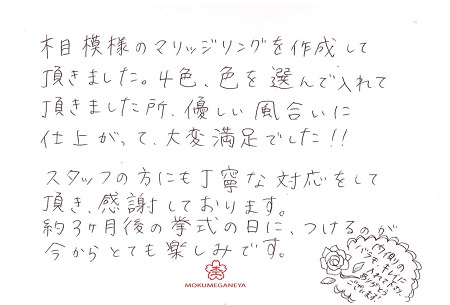 木目模様のマリッジリングを作成して
頂きました。4色、色を選んで入れて
頂きました所、優しい風合いに
仕上がって、大変満足でした!!
スタッフの方にも丁寧な対応をして
頂き、感謝しております。
約3ヶ月後の挙式の日に、つけるのが
今からとても楽しみです。
内側の
バラモ、キレイに
入れて下さり
ありがとう
ございます!!
MOKUMEGANEYA